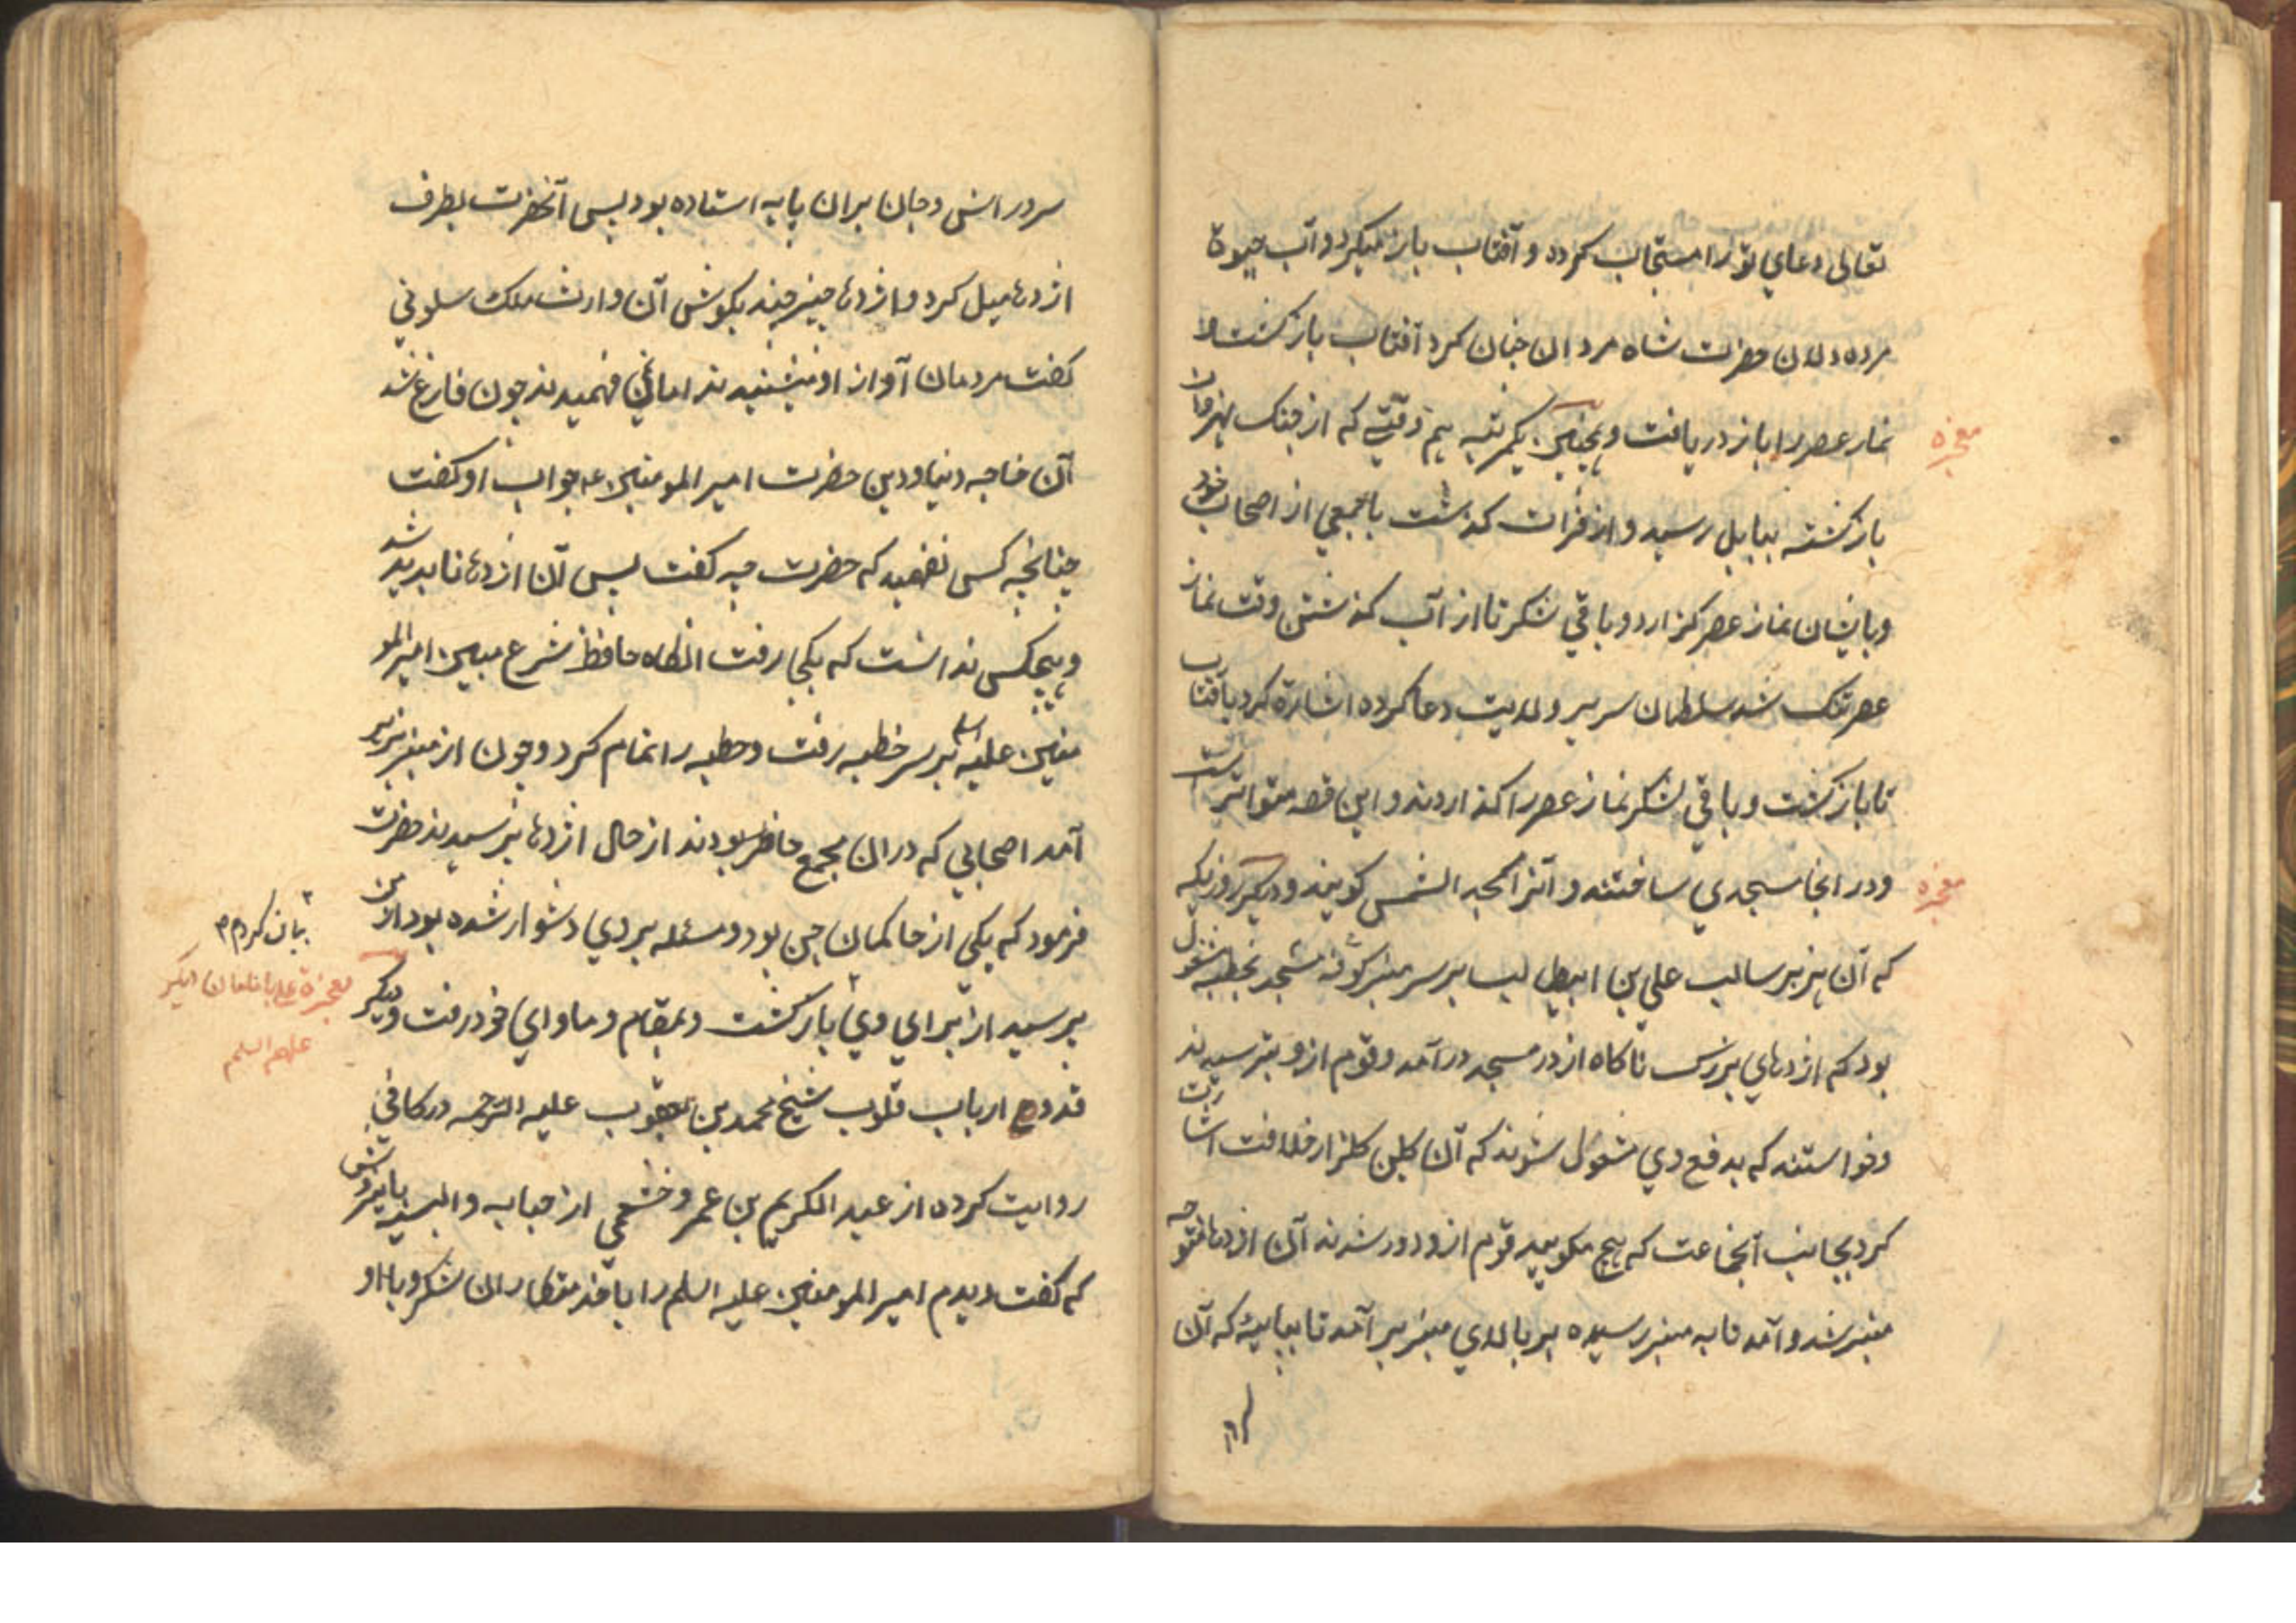 تعالی دعای تو را مستجاب کردد و آفتاب باز میکردد آب حیوة
مرده دلان حضرت شاه مردان چنان کرد آفتاب باز کشت و
معجزه
نماز عصر را باز دریافت و همچنین یکمرتبه هم وقتی که از جنک نهروان
باز کشته ببابل رسید و از فرات کذشت با جمعی از اصحاب خود
و بایشان نماز عصر کزارد و باقی لشکر تا از آب کذشتن وقت نماز
عصر تنک شد سلطان سریر ولایت دعا کرده اشاره کرد بآفتاب
تا باز کشت و باقی لشکر نماز عصر را کذاردند و این قصه متواتر است
معجزه
و در انجا مسجدی ساختند و آنرا مسجد الشمس کویند و دیکر روزیکه
که آن هزبر سالب علی بن ابیطالب بر سر منبر کوفه مسجد بخطبه مشغول
بود که اژدهای بزرک ناکاه از در مسجد درآمد و قوم ازو بترسیدند
و خواستند که بدفع وی مشغول شوند که آن کلبن کلزار خلافت اشارت
کرد بجانب آنجماعت که هیچ مکویید قوم ازو دور شدند آن اژدها متوجه
منبر شد و آمد تا به منبر رسیده بر بالای منبر بر آمد تا بپایهٔ که آن
سرور
سرور انس و جان بران پایه استاده بود پس آنحضرت بطرف
اژدها میل کرد و اژدها چیز چند بکوش آن وارث ملک سلونی
کفت مردمان آواز او میشنیدند اما نمی فهمیدند چون فارغ شد
آن خواجه دنیا و دین حضرت امیر المومنین ع جواب او کفت
چنانچه کسی نفهمید که حضرت چه کفت پس آن اژدها ناپدید شد
و هیچکس ندانست که بکجا رفت انکاه حافظ شرع مبین امیر المو
منین علیه السلم بر سر خطبه رفت و خطبه را تمام کرد و چون از منبر بزیر
آمد اصحابی که دران مجمع حاظر بودند از حال اژدها پرسیدند حضرت
فرمود که یکی از حاکمان جن بود و مسئله بر وی دشوار شده بود از من
بیان کردم
پرسید از برای وی باز کشت و بمقام و ماوای خود رفت و دیکر
معجزه علی با امامان دیکر
علیهم السلم
قدوه ارباب قلوب شیخ محمد بن یعقوب علیه الرحمه در کافی
روایت کرده از عبد الکریم بن عمرو خثعمی از حبابه والبیه
که کفت دیدم امیر المومنین علیه السلم را با